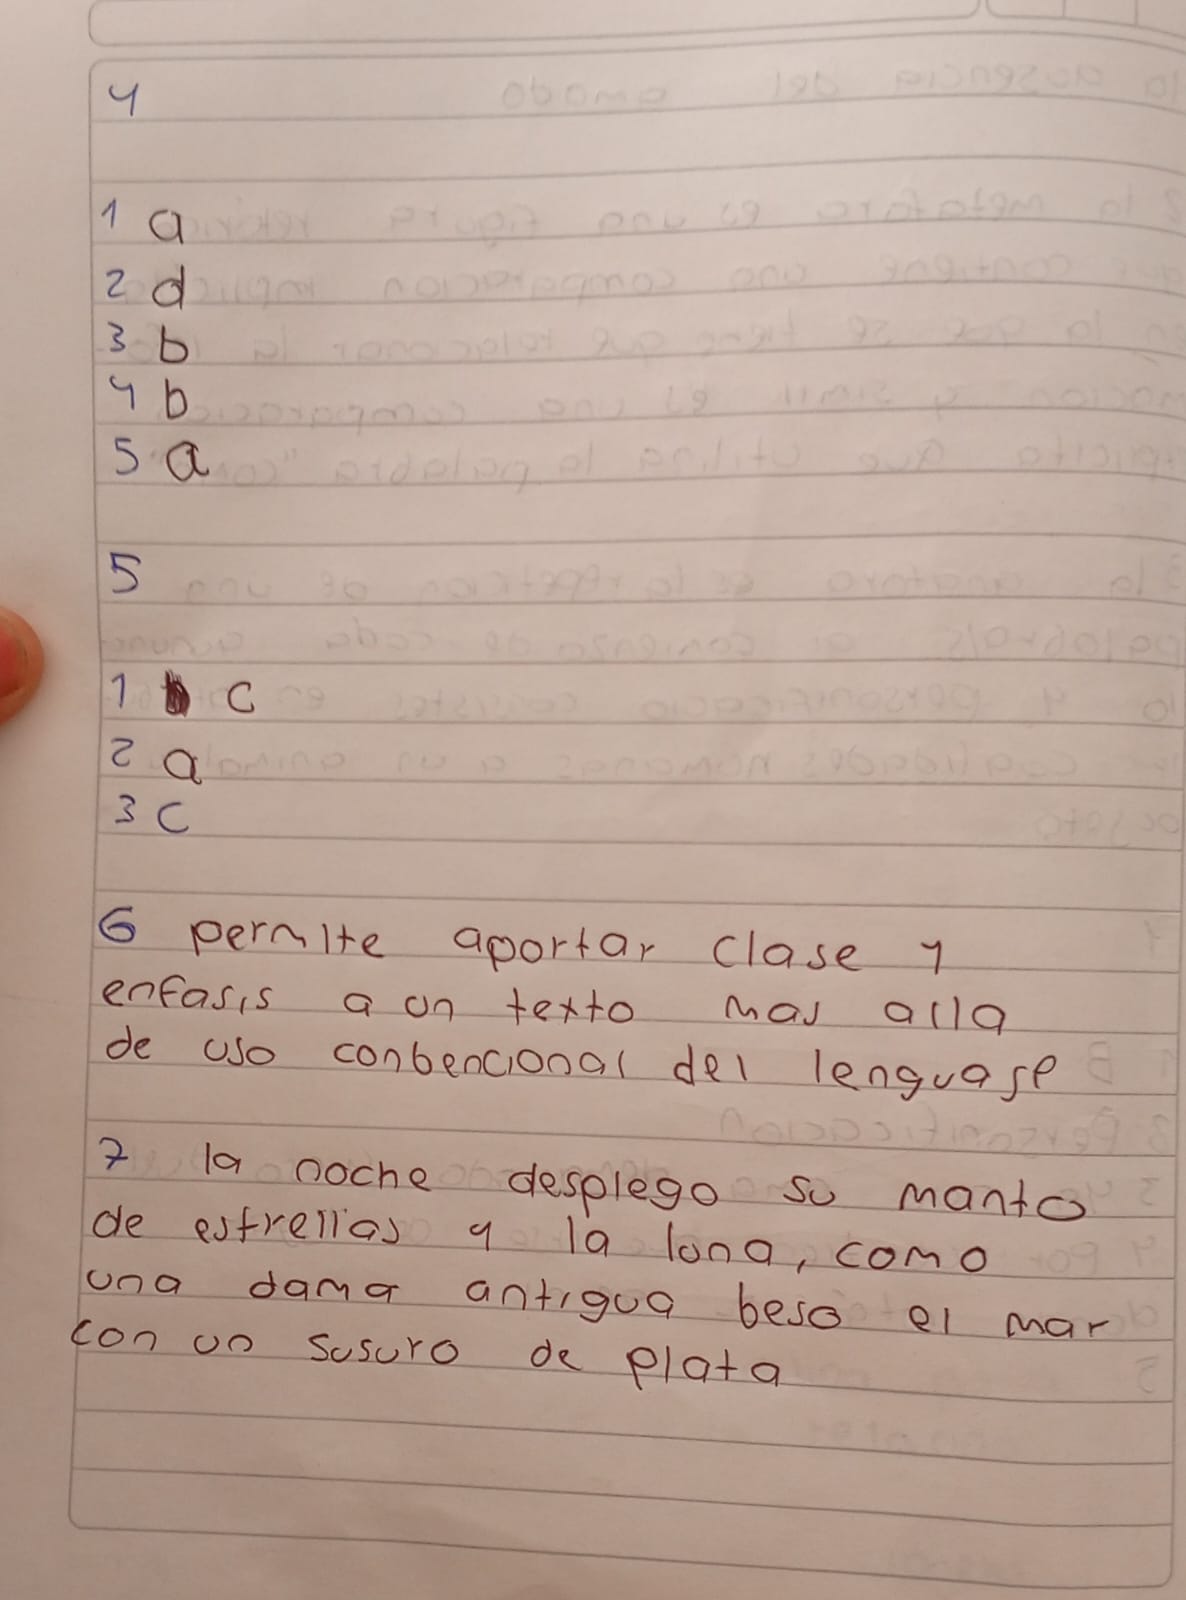 4
1 a
2 d
3 b
4 b
5 a
5
1 c
2 a
3 c
6 permite aportar clase y
enfasis a un texto mas alla
de uso conbencional del lenguase
7 la noche desplego su manto
de estrellas y la luna, como
una dama antigua beso el mar
con un susuro de plata